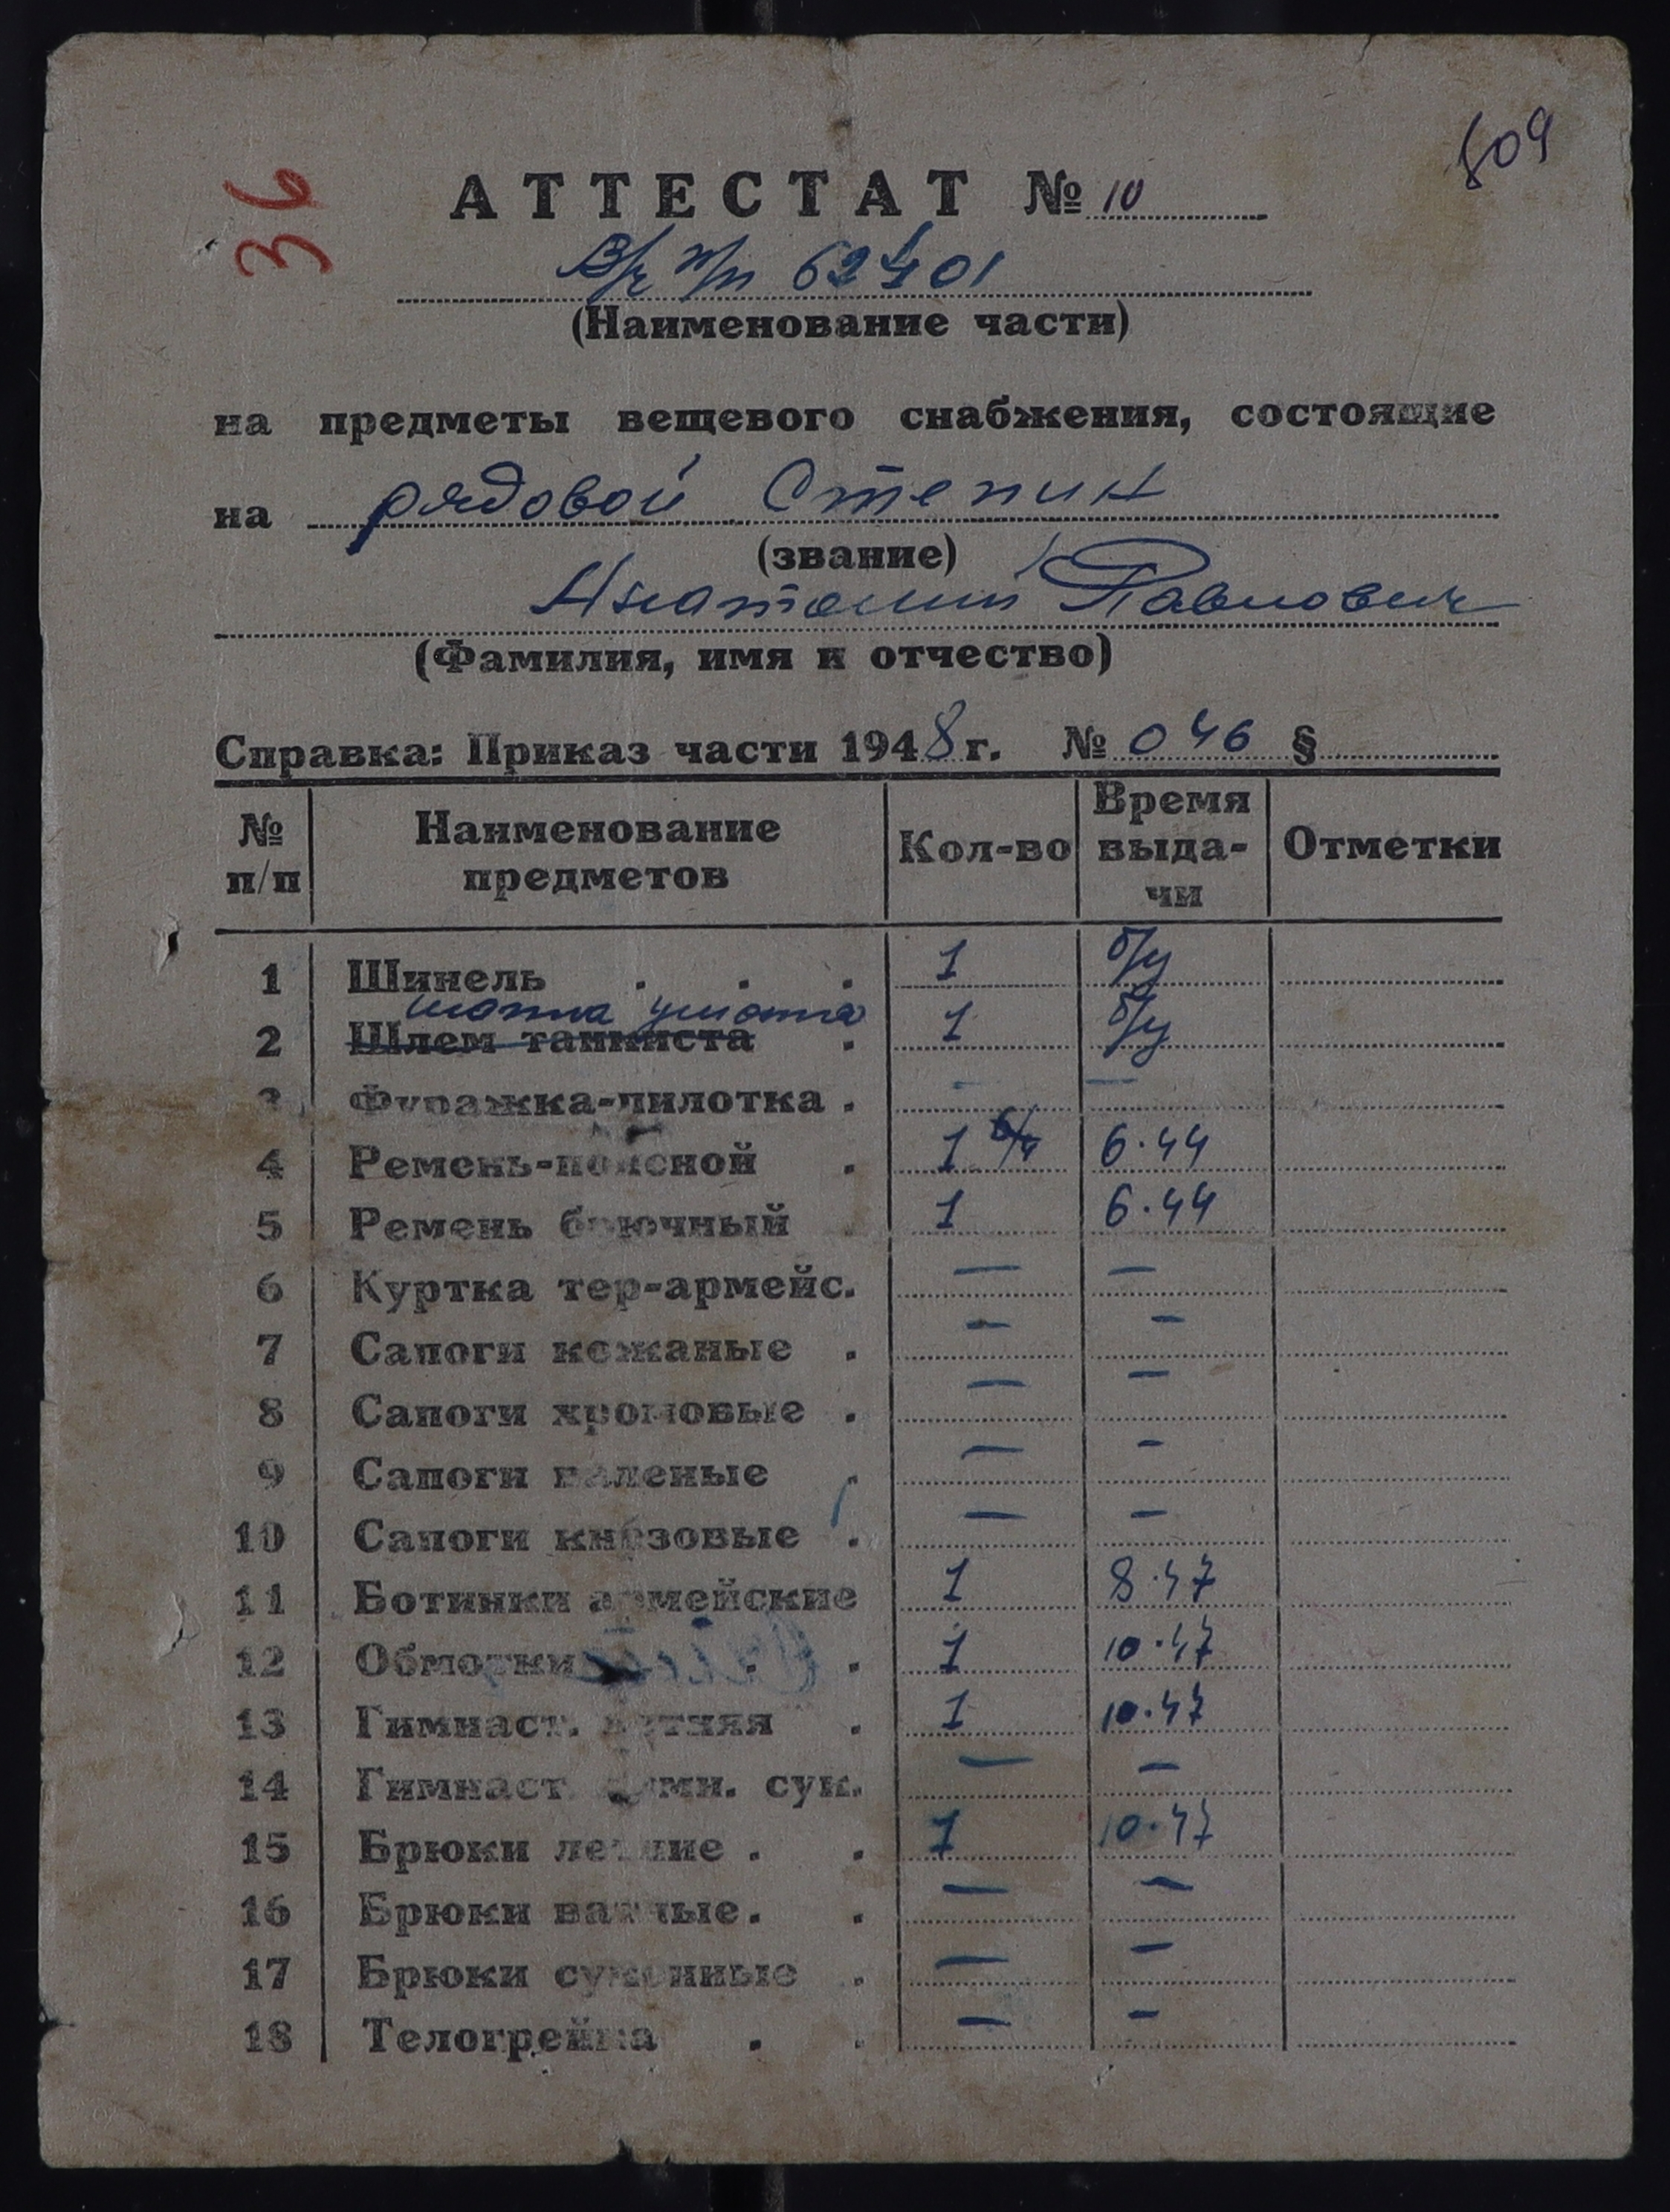 809
36
АТТЕСТАТ № 10
В/ч п/п 62401
(Наименование части)
на предметы вещевого снабжения, состоящие
на рядовой Степин
(звание)
Анатолий Павлович
(Фамилия, имя и отчество)
Справка: Приказ части 1948 г. № 046 §
№ п/п Наименование предметов Кол-во Время выда-чи Отметки
1 Шинель . . . 1 б/у
шапка ушанка
2 Шлем танкиста . 1 б/у
3 Фуражка-пилотка . — —
4 Ремень-поясной . 1 6.44
5 Ремень брючный . 1 6.44
6 Куртка тер-армейс. — —
7 Сапоги кожаные . — —
8 Сапоги хромовые . — —
9 Сапоги валеные . — —
10 Сапоги кирзовые . — —
11 Ботинки армейские 1 8.47
12 Обмотки . . 1 10.47
13 Гимнаст. летняя . 1 10.47
14 Гимнаст. зимн. сук. — —
15 Брюки летние . . 1 10.47
16 Брюки ватные . . — —
17 Брюки суконные . — —
18 Телогрейка . . — —